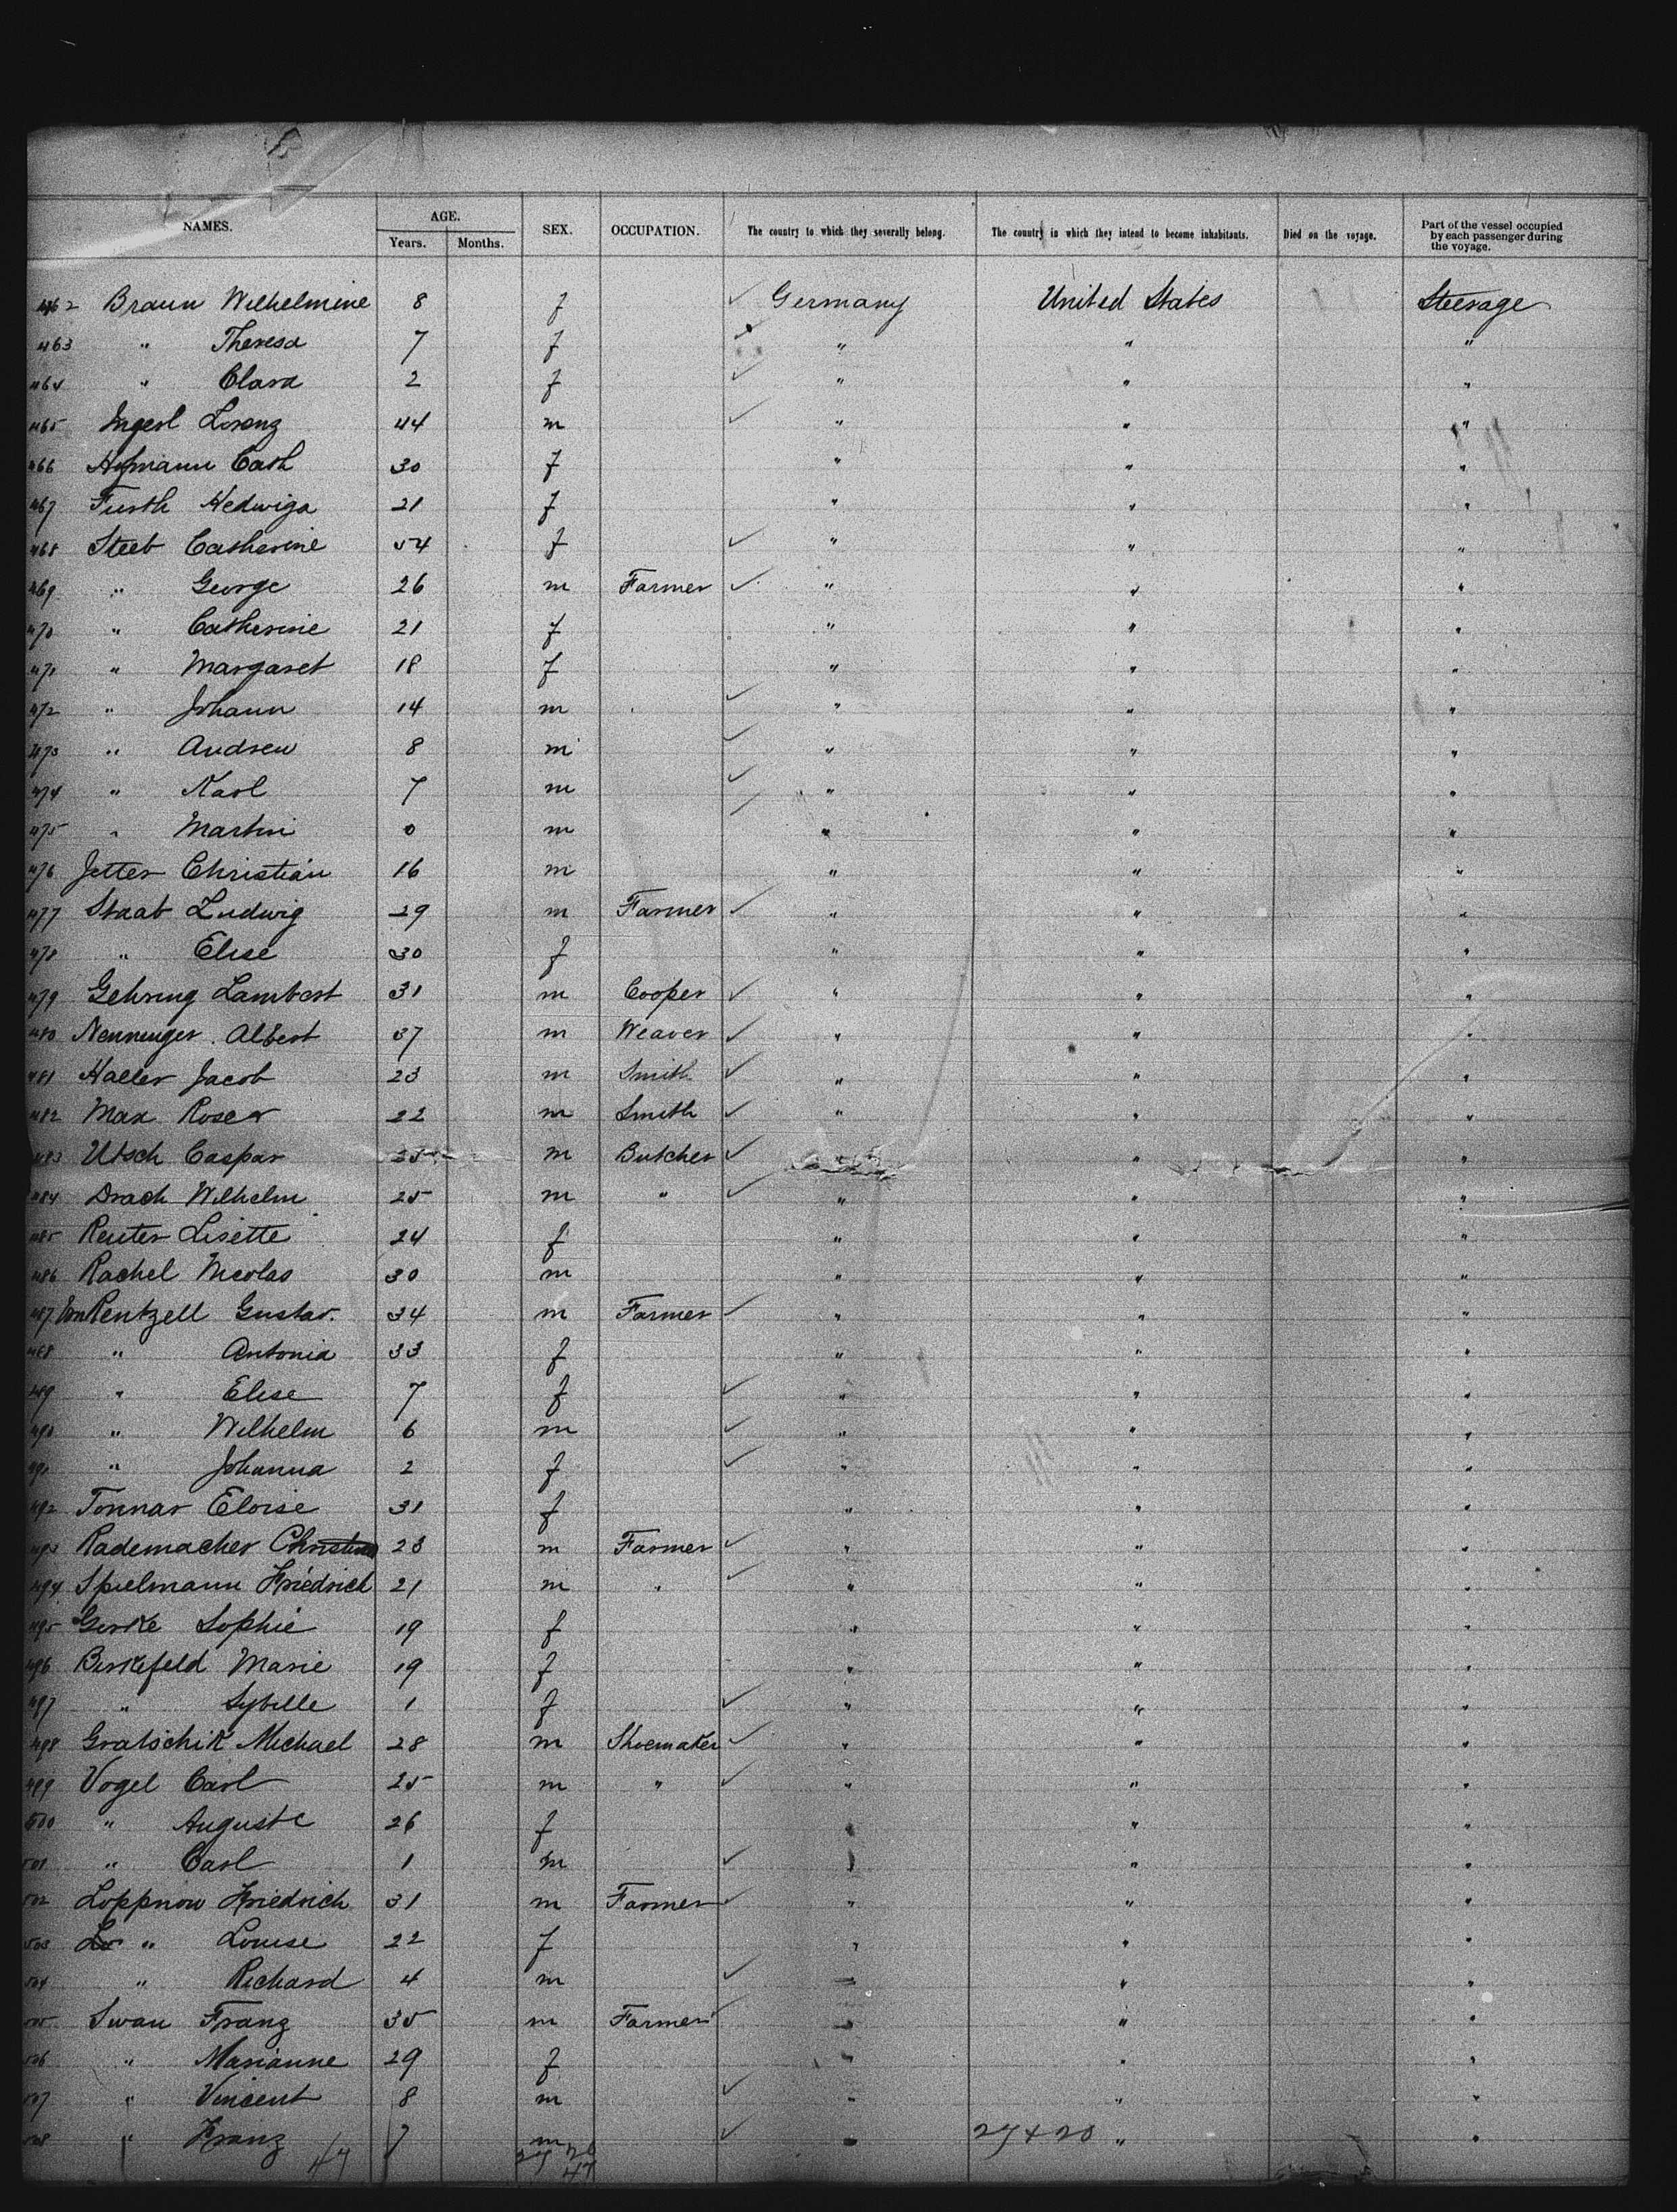 NAMES. AGE. SEX. OCCUPATION. The country to which they severally belong. The country in which they intend to become inhabitants. Died on the voyage. Part of the vessel occupied by each passenger during the voyage.
Years. Months.
462 Braun Wilhelmine 8 f ✓ Germany United States Steerage
463 " Theresa 7 f ✓ " " "
464 " Clara 2 f ✓ " " "
465 Lorenz 44 m ✓ " " "
466 Hofmann Cath 30 f " " "
467 Furth Hedwiga 21 f " " "
468 Steeb Catherine 54 f ✓ " " "
469 " George 26 m Farmer ✓ " " "
470 " Catherine 21 f " " "
471 " Margaret 18 f " " "
472 " Johann 14 m ✓ " " "
473 " Andrew 8 m ✓ " " "
474 " Karl 7 m ✓ " " "
475 " Martin 0 m ✓ " " "
476 Jetter Christian 16 m " " "
477 Staab Ludwig 29 m Farmer ✓ " " "
478 " Elise 30 f " " "
479 Gehring Lambert 31 m Cooper ✓ " " "
480 Nenninger Albert 37 m Weaver ✓ " " "
481 Haller Jacob 23 m Smith ✓ " " "
482 Max Roser 22 m Smith ✓ " " "
483 Utsch Caspar 25 m Butcher ✓ " " "
484 Drach Wilhelm 25 m " ✓ " " "
485 Reuter Lisette 24 f " " "
486 Rachel Nicolas 30 m " " "
487 Von Rentzell Gustav. 34 m Farmer ✓ " " "
488 " Antonia 33 f " " "
489 " Elise 7 f ✓ " " "
490 " Wilhelm 6 m ✓ " " "
491 " Johanna 2 f ✓ " " "
492 Tonnar Eloise 31 f " " "
493 Rademacher 23 m Farmer ✓ " " "
494 Spielmann Friedrich 21 m " ✓ " " "
495 Gerke Sophie 19 f " " "
496 Birkefeld Marie 19 f " " "
497 " Sybille 1 f ✓ " " "
498 Gratschik Michael 28 m Shoemaker ✓ " " "
499 Vogel Carl 25 m " ✓ " " "
500 " Auguste 26 f " " "
501 " Carl 1 m ✓ " " "
502 Loppnow Friedrich 31 m Farmer ✓ " " "
503 Lo " Louise 22 f " " "
504 " Richard 4 m ✓ " " "
505 Swan Franz 35 m Farmer ✓ " " "
506 " Marianne 29 f " " "
507 " Vincent 8 m ✓ " " "
508 " Franz 7 m ✓ " 27+20 " "
47 27 20
47